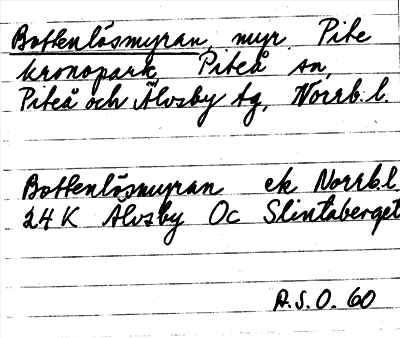 Bottenlösmyran, myr, Pite
kronopark, Piteå sn,
Piteå och Älvsby tg, Norrb.l.
Bottenlösmyran ek Norrb.l
24K Älvsby Oc Slintaberget
A.S.O. 60